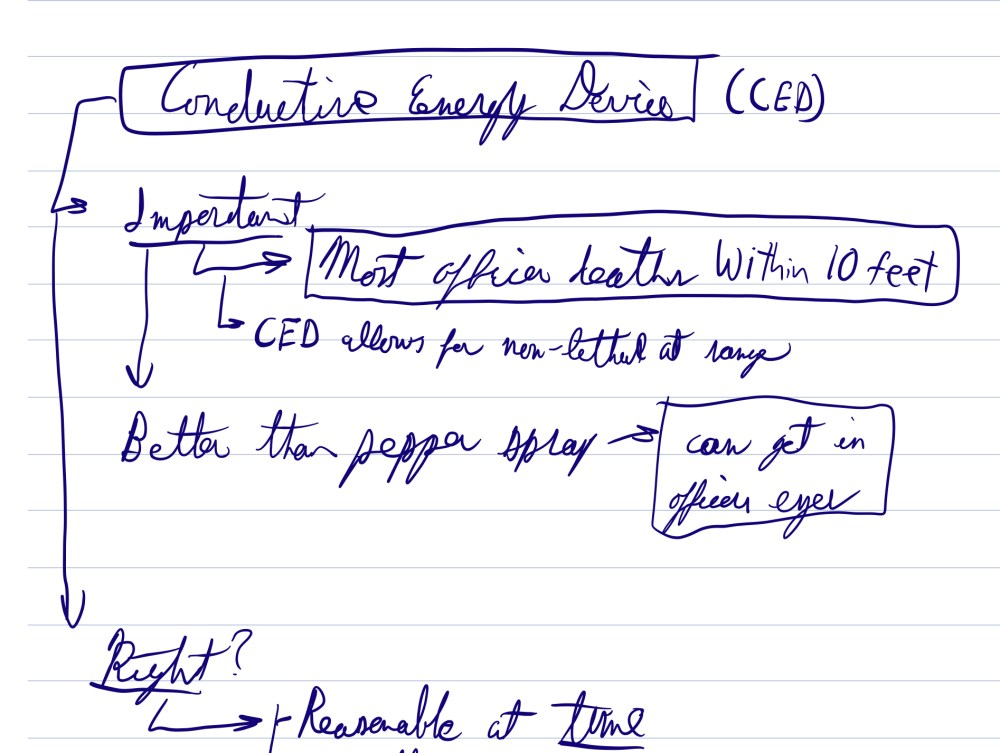 Conductive Energy Device (CED)
Important
Most officer deaths within 10 feet
CED allows for non-lethal at range
Better than pepper spray
can get in
officers eyes
Right?
Reasonable at time